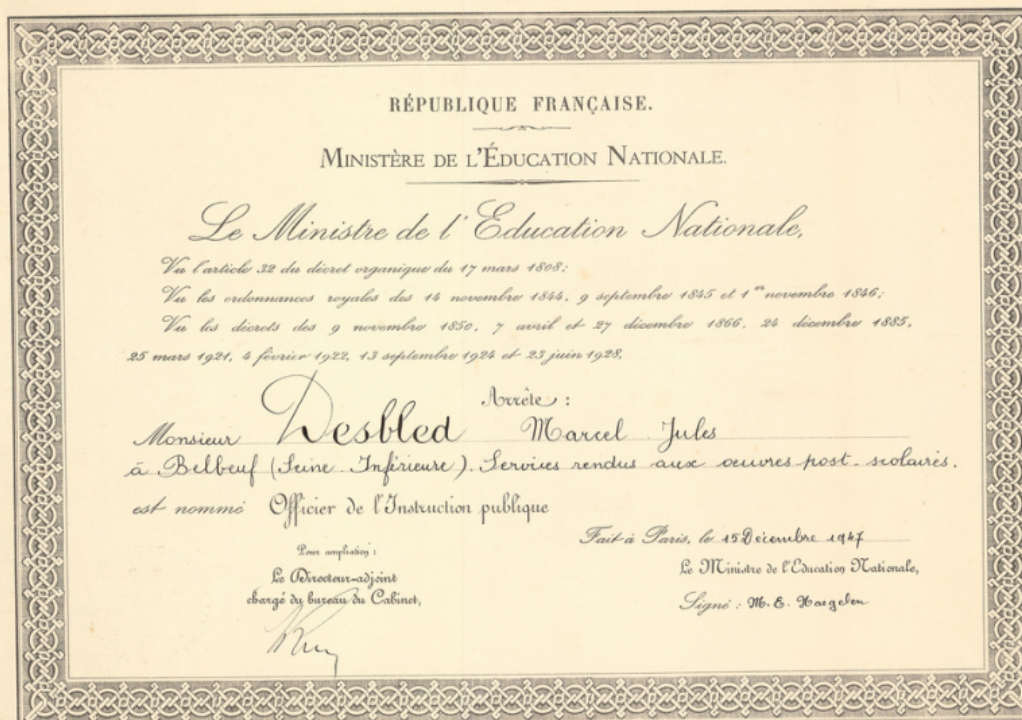 RÉPUBLIQUE FRANÇAISE.
MINISTÈRE DE L'ÉDUCATION NATIONALE.
Le Ministre de l'Education Nationale,
Vu l'article 32 du décret organique du 17 mars 1808;
Vu les ordonnances royales des 14 novembre 1844, 9 septembre 1845 et 1er novembre 1846;
Vu les décrets des 9 novembre 1850, 7 avril et 27 décembre 1866, 24 décembre 1885,
25 mars 1921, 4 février 1922, 13 septembre 1924 et 23 juin 1928,
Arrête :
Monsieur Desbled Marcel Jules
à Belbeuf (Seine Inférieure). Services rendus aux oeuvres post-scolaires.
est nommé Officier de l'Instruction publique
Fait à Paris, le 15 Décembre 1947
Pour ampliation :
Le Directeur-adjoint
chargé du bureau du Cabinet,
Le Ministre de l'Education Nationale,
Signé : M. E. Naegelen